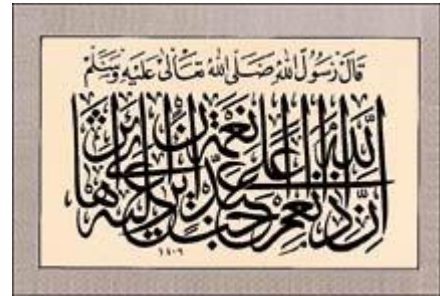 قَالَ رَسُولُ اللهِ صَلَّى اللهُ تَعَالَى عَلَيْهِ وَسَلَّمَ
إنّ الله إذا أنعم على عبد نعمة يحب أن يرى أثرها عليه
١٤٠٩